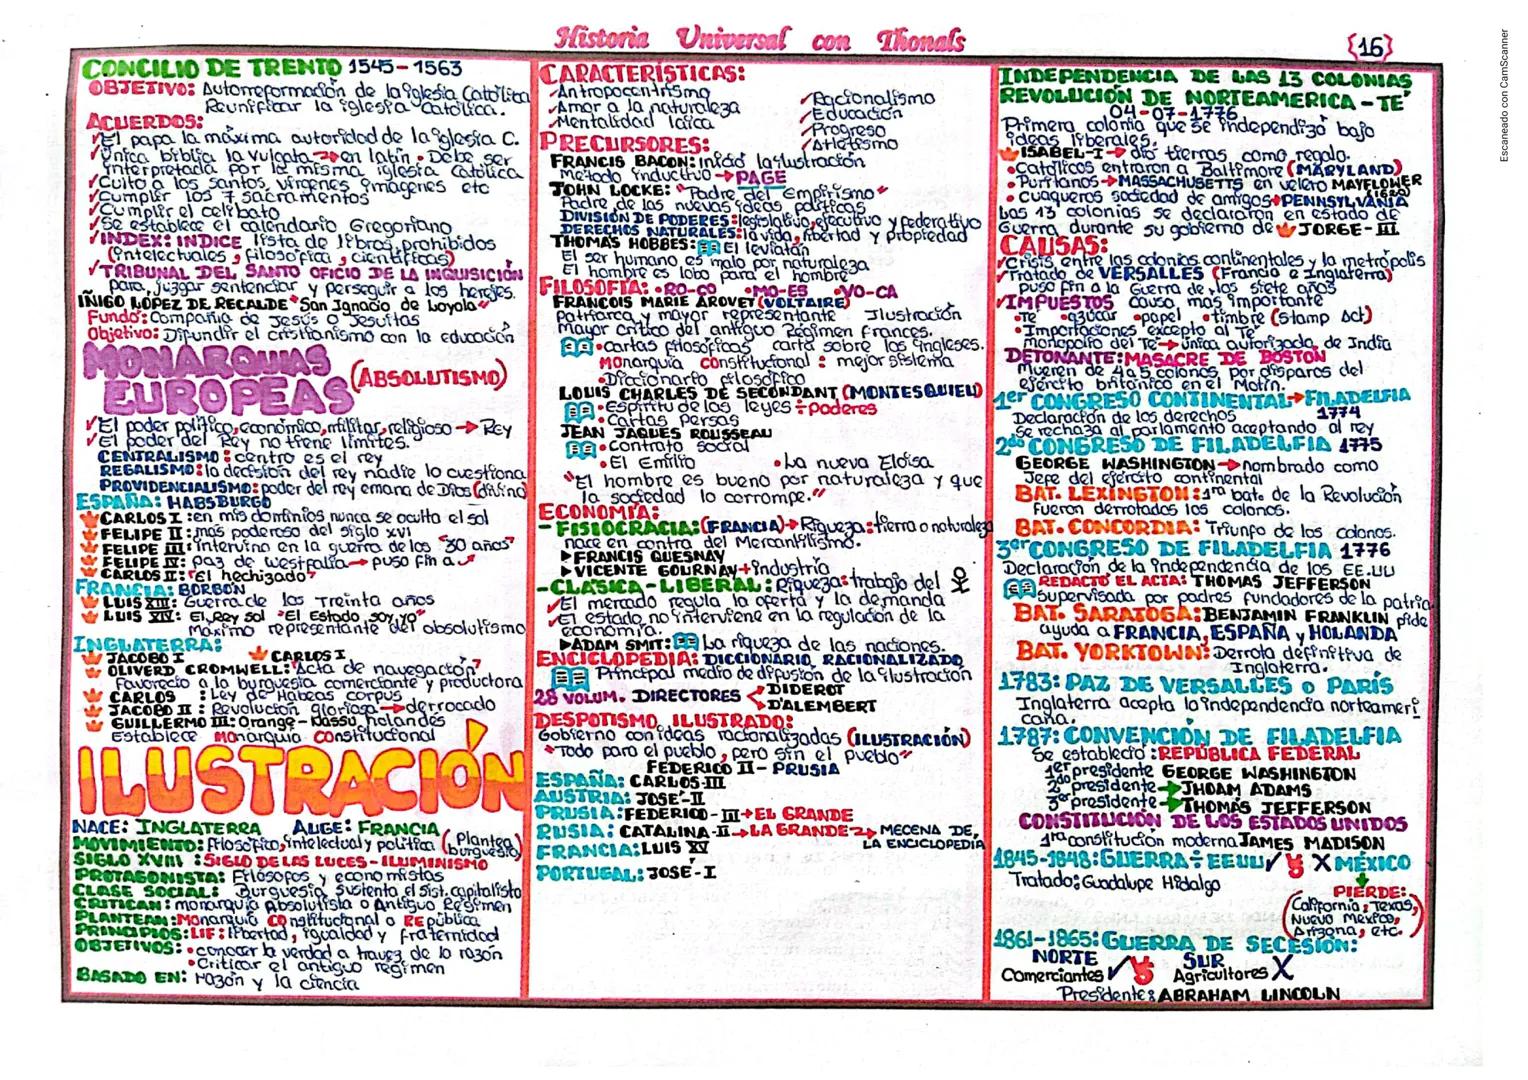 Historia Universal con Thonals
{16}
Escaneado con CamScanner
CONCILIO DE TRENTO 1545-1563
OBJETIVO: Autorreformación de la iglesia Católica
Reunificar la iglesia Católica.
ACUERDOS:
✓El papa la máxima autoridad de la iglesia C.
✓Única biblia la vulgata → en latín • Debe ser
interpretada por la misma iglesia católica
✓Culto a los santos, vírgenes, imágenes etc
✓Cumplir los 7 sacramentos
✓Cumplir el celibato
✓Se establece el calendario Gregoriano
✓INDEX: INDICE lista de libros prohibidos
(intelectuales, filosófica, científicas)
✓TRIBUNAL DEL SANTO OFICIO DE LA INQUISICIÓN
para juzgar sentenciar y perseguir a los herejes.
IÑIGO LÓPEZ DE RECALDE "San Ignacio de Loyola"
Fundó: Compañía de Jesús o Jesuitas
Objetivo: Difundir el cristianismo con la educación
MONARQUIAS
EUROPEAS (ABSOLUTISMO)
✓El poder político, económico, militar, religioso → Rey
✓El poder del Rey no tiene límites.
CENTRALISMO: centro es el rey
REGALISMO: la decisión del rey nadie lo cuestiona
PROVIDENCIALISMO: poder del rey emana de Dios (divino)
ESPAÑA: HABSBURGO
CARLOS I: en mis dominios nunca se oculta el sol
FELIPE II: mas poderoso del siglo XVI
FELIPE III: intervino en la guerra de los "30 años"
FELIPE IV: paz de westfalia → puso fin a
CARLOS II: "El hechizado"
FRANCIA: BORBON
LUIS XIII: Guerra de los Treinta años
LUIS XIV: El Rey sol "El Estado soy yo"
Máximo representante del absolutismo
INGLATERRA:
JACOBO I CARLOS I
OLIVERD CROMWELL: "Acta de navegación"
favoreció a la burguesía comerciante y productora
CARLOS : Ley de Habeas corpus
JACOBO II : Revolución gloriosa → derrocado
GUILLERMO III: Orange-Nassu, holandes
Establece monarquía constitucional
ILUSTRACIÓN
NACE: INGLATERRA AUGE: FRANCIA
MOVIMIENTO: Filosófico, intelectual y política (Plantea burguesía)
SIGLO XVIII : SIGLO DE LAS LUCES - ILUMINISMO
PROTAGONISTA: Filósofos y economistas
CLASE SOCIAL: Burguesía sustenta el sist. capitalista
CRITICAN: monarquía Absolutista o Antiguo Régimen
PLANTEAN: Monarquía COnstitucional o REpública
PRINCIPIOS: LIF: libertad, igualdad y fraternidad
OBJETIVOS: • conocer la verdad a travez de la razón
• Criticar el antiguo régimen
BASADO EN: razón y la ciencia
CARACTERÍSTICAS:
✓Antropocentrismo
✓Amor a la naturaleza
✓Mentalidad laica
✓Racionalismo
✓Educación
✓Progreso
✓Atletismo
PRECURSORES:
FRANCIS BACON: inició la ilustración
Metodo inductivo → PAGE
JOHN LOCKE: "Padre del Empirismo"
Padre de las nuevas ideas políticas
DIVISIÓN DE PODERES: legislativo, ejecutivo y federativo
DERECHOS NATURALES: la vida, libertad y propiedad
THOMAS HOBBES: El leviatán
El ser humano es malo por naturaleza
El hombre es lobo para el hombre
FILOSOFÍA: •RO-CO •MO-ES •VO-CA
FRANCOIS MARIE AROVET (VOLTAIRE)
patriarca y mayor representante Ilustración
Mayor crítico del antiguo Régimen frances.
•cartas filosóficas carta sobre los ingleses.
monarquía constitucional : mejor sistema
•Diccionario filosófico
LOUIS CHARLES DE SECONDANT (MONTESQUIEU)
•Espíritu de las leyes ÷ poderes
•Cartas Persas
JEAN JAQUES ROUSSEAU
•Contrato social
•El Emilio •La nueva Eloísa
"El hombre es bueno por naturaleza y que
la sociedad lo corrompe."
ECONOMIA:
- FISIOCRACIA: (FRANCIA) → Riqueza: tierra o naturaleza
nace en contra del Mercantilismo.
▶FRANCIS QUESNAY
▶VICENTE GOURNAY + industria
-CLASICA-LIBERAL: Riqueza: trabajo del
✓El mercado regula la oferta y la demanda
✓El estado no interviene en la regulación de la
economía.
▶ADAM SMIT: La riqueza de las naciones.
ENCICLOPEDIA: DICCIONARIO RACIONALIZADO
Principal medio de difusión de la ilustración
28 VOLUM. DIRECTORES DIDEROT
D'ALEMBERT
DESPOTISMO ILUSTRADO:
Gobierno con ideas racionalizadas (ILUSTRACIÓN)
"Todo para el pueblo, pero sin el pueblo"
FEDERICO II - PRUSIA
ESPAÑA: CARLOS-III
AUSTRIA: JOSÉ-II
PRUSIA: FEDERICO-III → EL GRANDE
RUSIA: CATALINA-II → LA GRANDE → MECENA DE
LA ENCICLOPEDIA
FRANCIA: LUIS XV
PORTUGAL: JOSÉ-I
INDEPENDENCIA DE LAS 13 COLONIAS
REVOLUCIÓN DE NORTEAMERICA - TE
04-07-1776
Primera colonia que se independizó bajo
ideas liberales.
ISABEL-I → dio tierras como regalo.
•Católicos entraron a Baltimore (MARYLAND)
•Puritanos → MASSACHUSETTS en velero MAYFLOWER
(1620)
•Cuaqueros sociedad de amigos → PENNSYLVANIA
Las 13 colonias se declararon en estado de
Guerra durante su gobierno de JORGE-III
CAUSAS:
✓Crisis entre las colonias continentales y la metrópolis
✓Tratado de VERSALLES (Francia e Inglaterra)
puso fin a la Guerra de los siete años
✓IMPUESTOS causa mas importante
•Te •azúcar •papel •timbre (Stamp Act)
•Importaciones excepto al Te
monopolio del Te → única autorizada de India
DETONANTE: MASACRE DE BOSTON
Mueren de 4 a 5 colonos por disparos del
ejército británico en el Motín.
1er CONGRESO CONTINENTAL → FILADELFIA
Declaración de los derechos 1774
Se rechaza al parlamento aceptando al rey
2do CONGRESO DE FILADELFIA 1775
GEORGE WASHINGTON → nombrado como
Jefe del ejército continental
BAT. LEXINGTON: 1ra bat. de la Revolución
fueron derrotados los colonos.
BAT. CONCORDIA: Triunfo de los colonos.
3er CONGRESO DE FILADELFIA 1776
Declaración de la independencia de los EE.UU
REDACTÓ EL ACTA: THOMAS JEFFERSON
supervisada por padres fundadores de la patria
BAT. SARATOGA: BENJAMIN FRANKLIN pide
ayuda a FRANCIA, ESPAÑA y HOLANDA
BAT. YORKTOWN: Derrota definitiva de
Inglaterra.
1783: PAZ DE VERSALLES o PARÍS
Inglaterra acepta la independencia norteameri
cana.
1787: CONVENCIÓN DE FILADELFIA
Se estableció : REPÚBLICA FEDERAL
1er presidente GEORGE WASHINGTON
2do presidente → JHOAM ADAMS
3er presidente → THOMAS JEFFERSON
CONSTITUCIÓN DE LOS ESTADOS UNIDOS
1ra constitución moderna JAMES MADISON
1845-1848: GUERRA ÷ EEUU ✓ X MÉXICO
Tratado: Guadalupe Hidalgo
PIERDE:
(California, Texas,
Nuevo México,
Arizona, etc.)
1861-1865: GUERRA DE SECESIÓN:
NORTE SUR
Comerciantes ✓ Agricultores X
Presidente: ABRAHAM LINCOLN